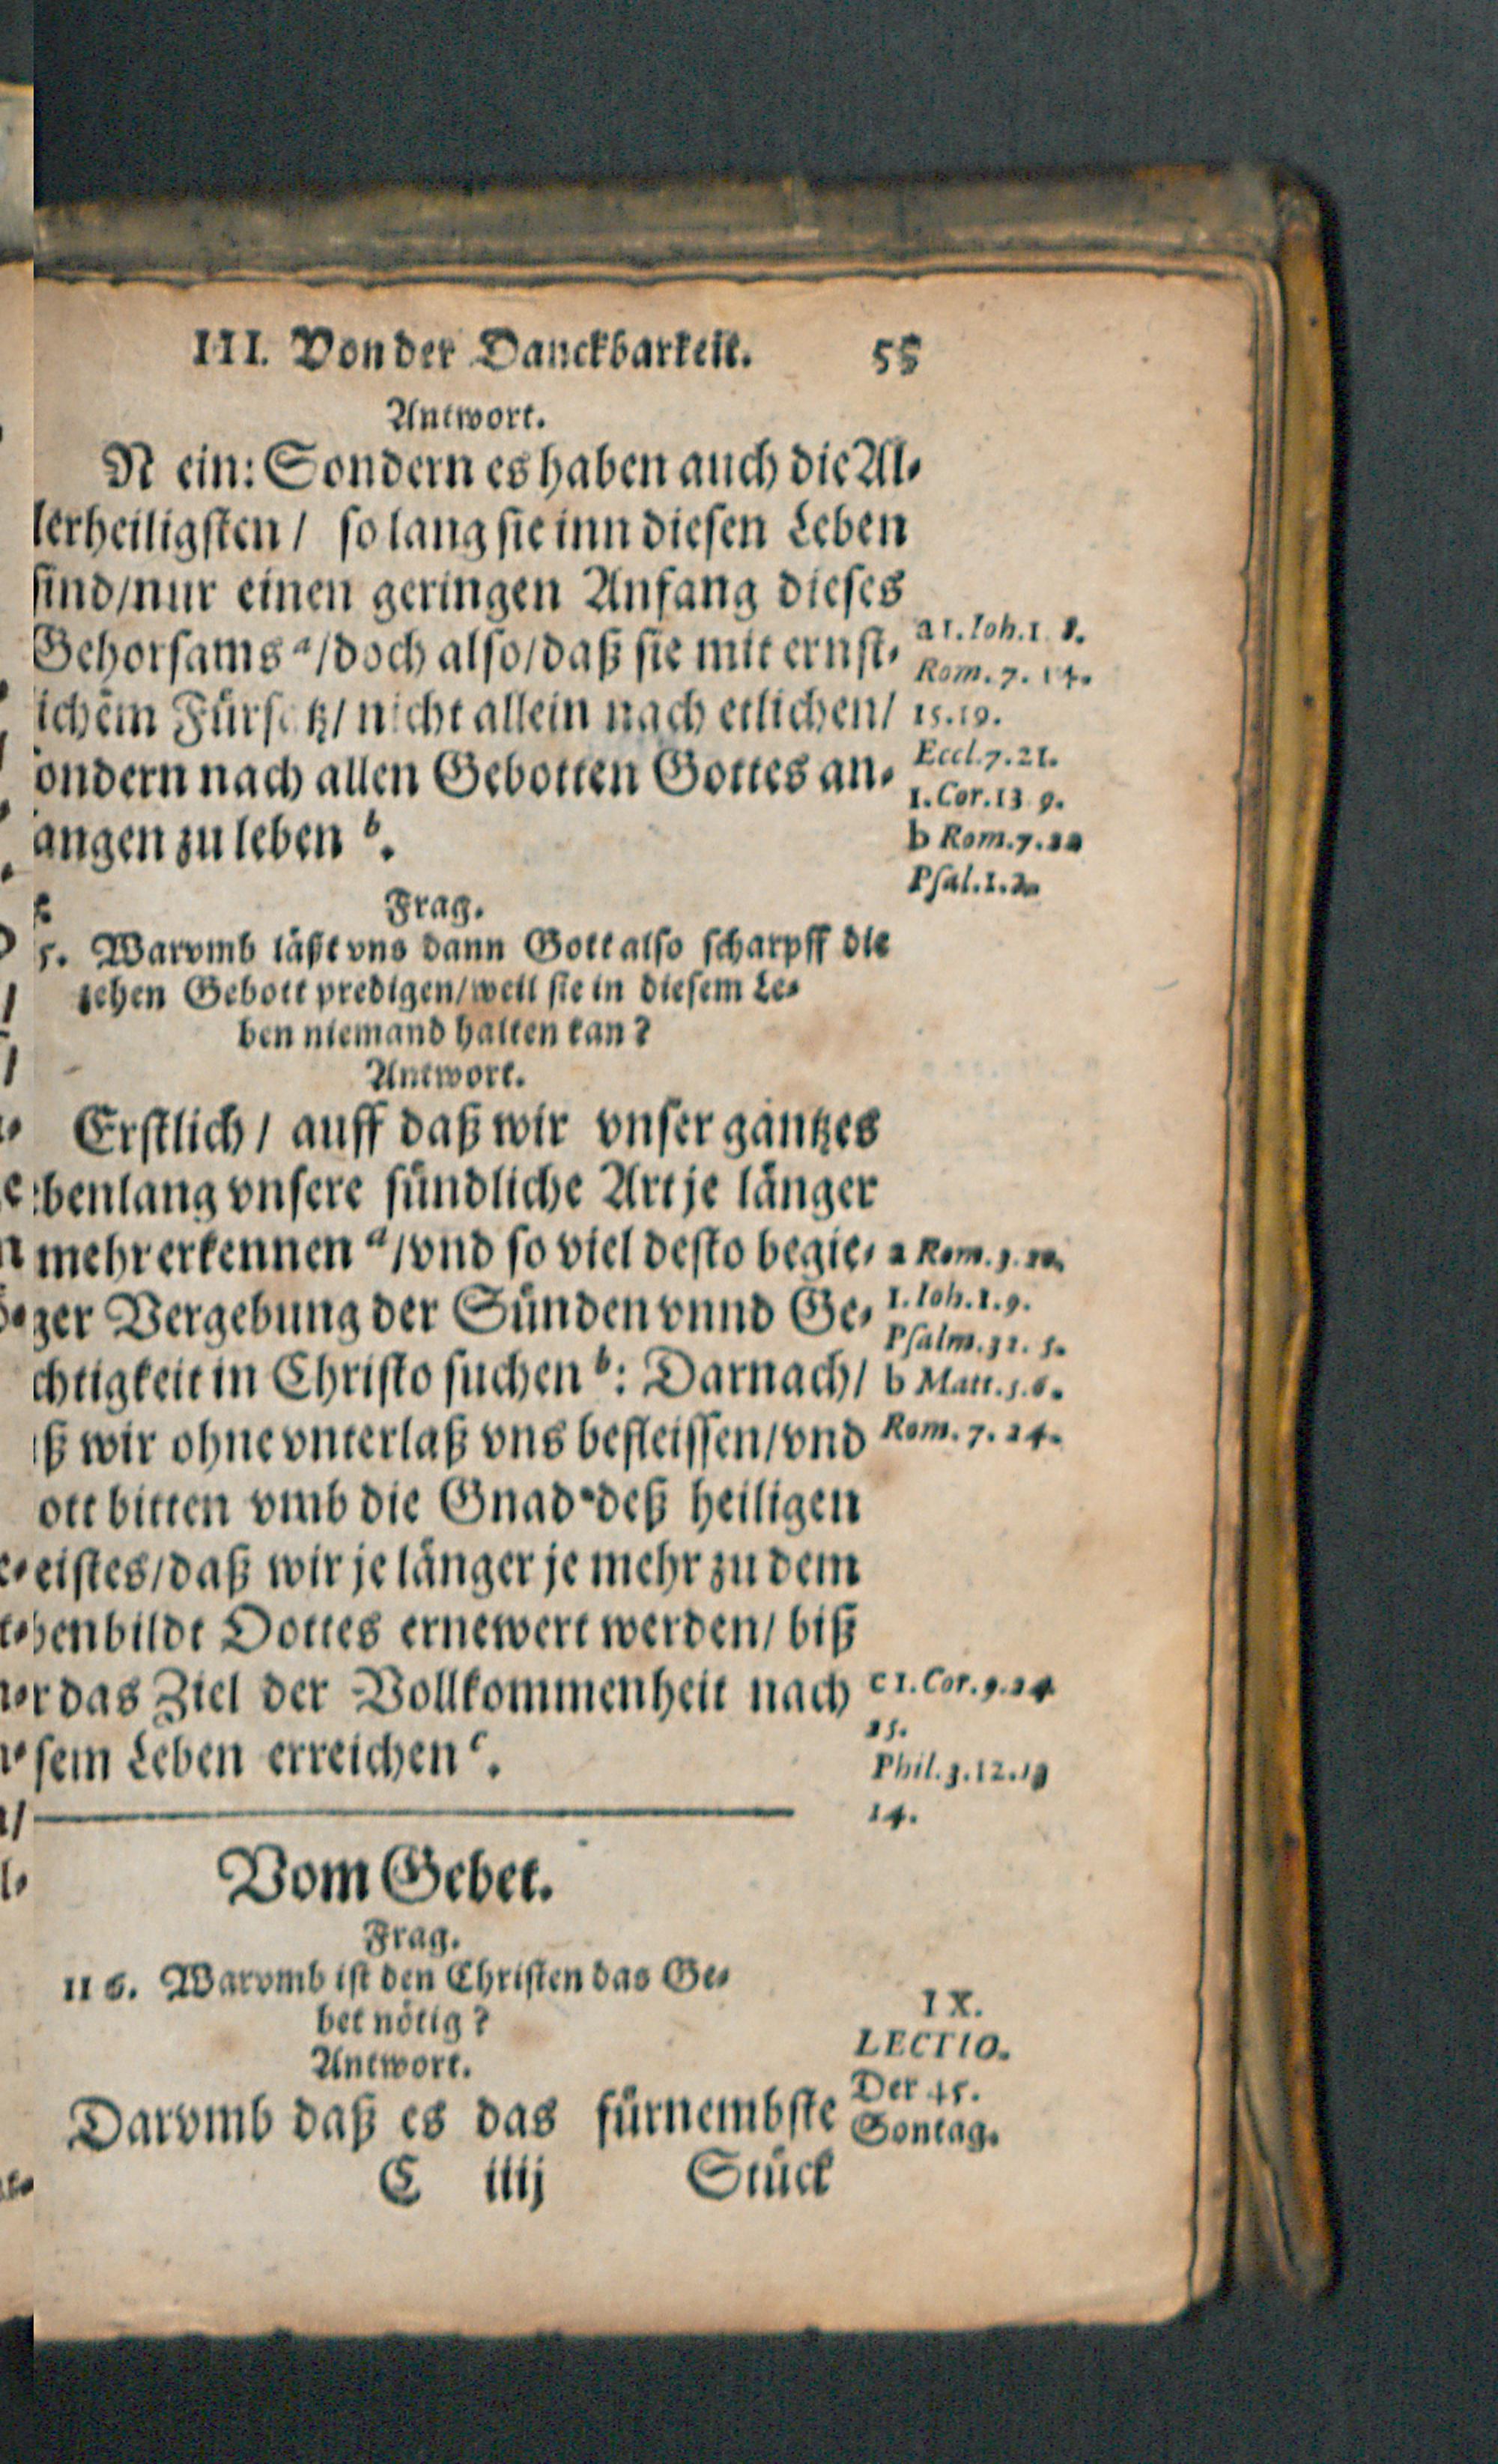 III. Von der Danckbarkeit. 55
Antwort.
Nein: Sondern es haben auch die Al-
lerheiligsten / so lang sie inn diesen Leben
sind/nur einen geringen Anfang dieses
Gehorsams a/doch also/daß sie mit ernst-
ichem Fürsatz/ nicht allein nach etlichen/
ondern nach allen Gebotten Gottes an-
angen zu leben b.
a 1. Ioh. 1. 8.
Rom. 7. 14.
15.19.
Eccl. 7. 21.
1. Cor. 13 9.
b Rom. 7. 22
Psal. 1. 2.
Frag.
5. Warvmb läßt vns dann Gott also scharpff die
zehen Gebott predigen/weil sie in diesem Le-
ben niemand halten kan?
Antwort.
Erstlich / auff daß wir vnser gantzes
benlang vnsere sündliche Art je länger
mehr erkennen a/vnd so viel desto begie-
ger Vergebung der Sünden vnnd Ge-
chtigkeit in Christo suchen b: Darnach/
ß wir ohne vnterlaß vns befleissen/vnd
ott bitten vmb die Gnad deß heiligen
eistes/daß wir je länger je mehr zu dem
benbildt Dottes ernewert werden/ biß
r das Ziel der Vollkommenheit nach
sem Leben erreichen c.
a Rom. 3. 20.
1. Ioh. 1. 9.
Psalm. 32. 5.
b Matt. 5. 6.
Rom. 7. 24.
c 1. Cor. 9. 24
25.
Phil. 3. 12. 13
14.
Vom Gebet.
Frag.
116. Warvmb ist den Christen das Ge-
bet nötig?
Antwort.
Darvmb daß es das fürnembste
IX.
LECTIO.
Der 45.
Sontag.
C iiij Stück